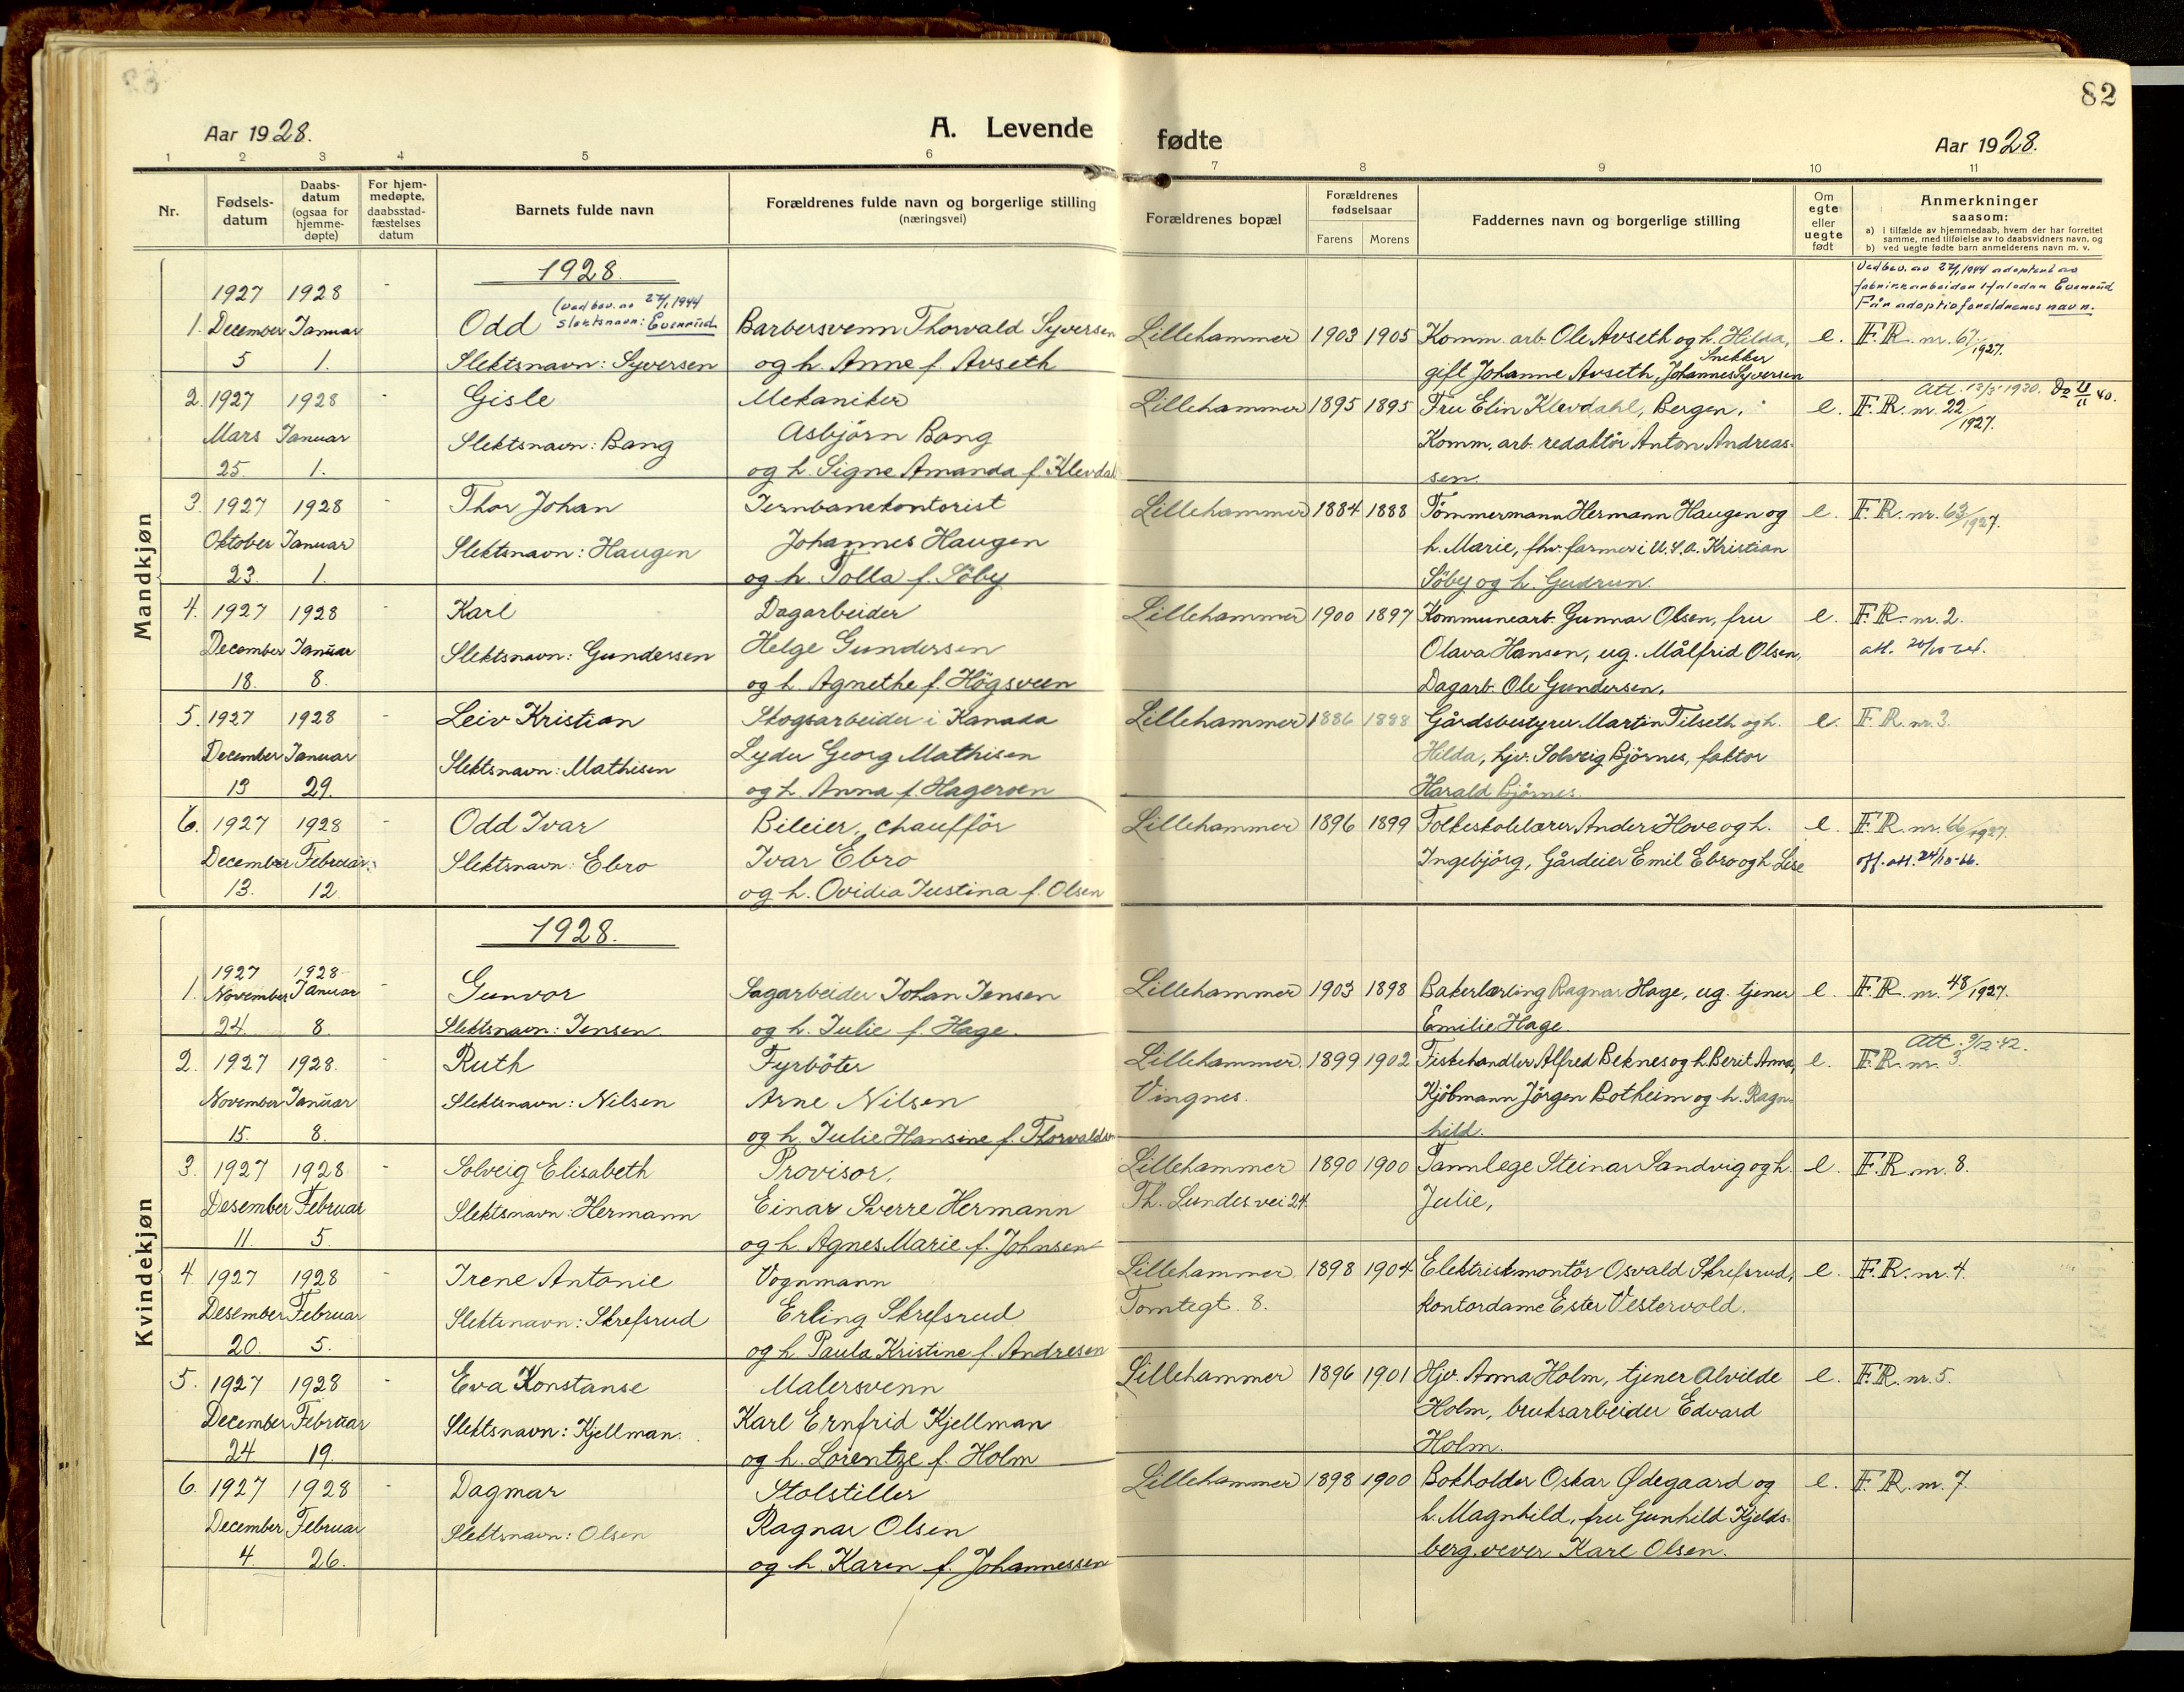 82
Aar 1928.
A. Levende
fødte
Aar 1928.
1 2 3 4 5 6 7 8 9 10 11
Nr.
Fødsels-
datum
Daabs-
datum
(ogsaa for
hjemme-
døpte)
For hjem-
medøpte,
daabsstad-
fæstelses
datum
Barnets fulde navn
Forældrenes fulde navn og borgerlige stilling
(næringsvei)
Forældrenes bopæl
Forældrenes
fødselsaar
Farens Morens
Faddernes navn og borgerlige stilling
Om
egte
eller
uegte
født
Anmerkninger
saasom:
a) i tilfælde av hjemmedaab, hvem der har forrettet
samme, med tilføielse av to daabsvidners navn, og
b) ved uegte fødte barn anmelderens navn m. v.
Mandkjøn
1928.
Ved bev. av 27/1 1944 adoptert av
fabrikkarbeider Halvdan Evenrud
Får adoptivforeldrenes navn.
1927 1928 -
(ved bev. av 27/1 1944
slektsnavn: Evenrud
1. December Januar Odd Barbersvenn Thorvald Syversen Lillehammer 1903 1905 Komm. arb. Ole Avseth og h. Hilda, e. F.R. nr. 67/1927.
5 1. Slektsnavn: Syversen og h. Anne f. Avseth gift Johanne Avseth, Snekker Johannes Syversen
2. 1927 1928 - Gisle Mekaniker Lillehammer 1895 1895 Fru Elin Klevdahl, Bergen, e. F.R. nr. 22/1927. Att. 13/5 1930. Do 4/11 40.
Mars Januar Slektsnavn: Bang Asbjörn Bang Komm. arb. redaktör Anton Andreas-
25. 1. og h. Signe Amanda f. Klevdal sen.
3. 1927 1928 - Thor Johan Jernbanekontorist Lillehammer 1884 1888 Tömmermann Hermann Haugen og e. F.R. nr. 63/1927.
Oktober Januar Slektsnavn: Haugen Johannes Haugen h. Marie, fhv. farmer i U.S.A. Kristian
23. 1. og h. Tolla f. Söby Söby og h. Gudrun.
4. 1927 1928 - Karl Dagarbeider Lillehammer 1900 1897 Kommunearb. Gunnar Olsen, fru e. F.R. nr. 2.
December Januar Slektsnavn: Gundersen Helge Gundersen Olava Hansen, ug. Målfrid Olsen,
18. 8. og h. Agnethe f. Högsveen Dagarb. Ole Gundersen.
5. 1927 1928 - Leiv Kristian Skogsarbeider i Kanada Lillehammer 1886 1888 Gårdsbestyrer Martin Tilseth og h. e. F.R. nr. 3.
December Januar Slektsnavn: Mathisen Lyder Georg Mathisen Hilda, hjv. Solveig Björnes, faktor
13 29. og h. Anna f. Hageroen Harald Björnes.
6. 1927 1928 - Odd Ivar Bileier, chafför Lillehammer 1896 1899 Folkeskolelærer Anders Hove og h. e. F.R. nr. 66/1927.
December Februar Slektsnavn: Ebro Ivar Ebro Ingebjörg, Gårdeier Emil Ebro og h. Lise off. att. 24/10-66.
13. 12. og h. Ovidia Justina f. Olsen
Kvindekjøn
1928.
1927 1928
1. November Januar - Gunvor Sagarbeider Johan Jensen Lillehammer 1903 1898 Bakerlærling Ragnar Hage, ug. tjener e. F.R. nr. 48/1927.
24. 8. Slektsnavn: Jensen og h. Julie f. Hage. Emilie Hage.
2. 1927 1928. - Ruth Fyrböter Lillehammer. 1899 1902 Fiskehandler Alfred Beknes og h. Berit Anna, e. F.R. nr. 3. Att. 9/12-42.
November Januar Slektsnavn: Nilsen Arne Nilsen Vingnes. Kjöbmann Jörgen Botheim og h. Ragn-
15. 8. og h. Julie Hansine f. Thorvaldsen hild.
3. 1927 1928 - Solveig Elisabeth Provisor. Lillehammer 1890 1900 Tannlege Steinar Sandvig og h. e. F.R. nr. 8.
Desember Februar Slektsnavn: Hermann Einar Sverre Hermann Th. Lundes vei 24. Julie,
11. 5. og h. Agnes Marie f. Johnsen
4 1927 1928 - Irene Antonie Vognmann Lillehammer. 1898 1904 Elektriskmontör Osvald Skrefsrud, e. F.R. nr. 4.
Desember Februar Slektsnavn: Skrefsrud Erling Skrefsrud Tomtegt. 8. kontordame Ester Vestervold.
20. 5. og h. Paula Kristine f. Andresen
5. 1927 1928 - Eva Konstanse Malersvenn Lillehammer 1896 1901 Hjv. Anna Holm, tjener Alvilde e. F.R. nr. 5.
December Februar Slektsnavn: Kjellman. Karl Ernfrid Kjellman Holm, bruksarbeider Edvard
24 19. og h. Lorentze f. Holm Holm.
6. 1927 1928 - Dagmar Stolstiller Lillehammer 1898 1900 Bokholder Oskar Ødegaard og e. F.R. nr. 7.
December Februar Slektsnavn: Olsen Ragnar Olsen h. Magnhild, fru Gunhild Kjelds-
4. 26. og h. Karen f. Johannessen berg, vever Karl Olsen.